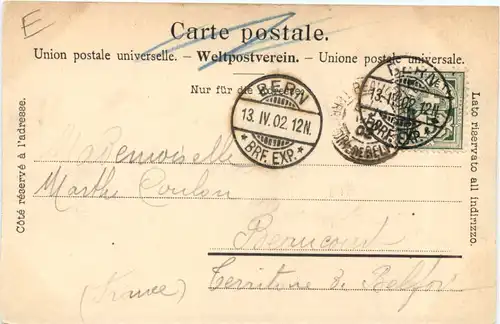 E
Carte postale.
Union postale universelle. – Weltpostverein. – Unione postale universale.
Nur für die Adresse.
BERN
13. IV. 02. 12N.
* BRF. EXP. *
BERN
13. IV. 02. 12N.
* BRF. EXP. *
Côté réservé à l'adresse.
Lato riservato all indirizzo.
Mademoiselle
Marthe Coulon
Beaucourt
Territoire de Belfort
(France)